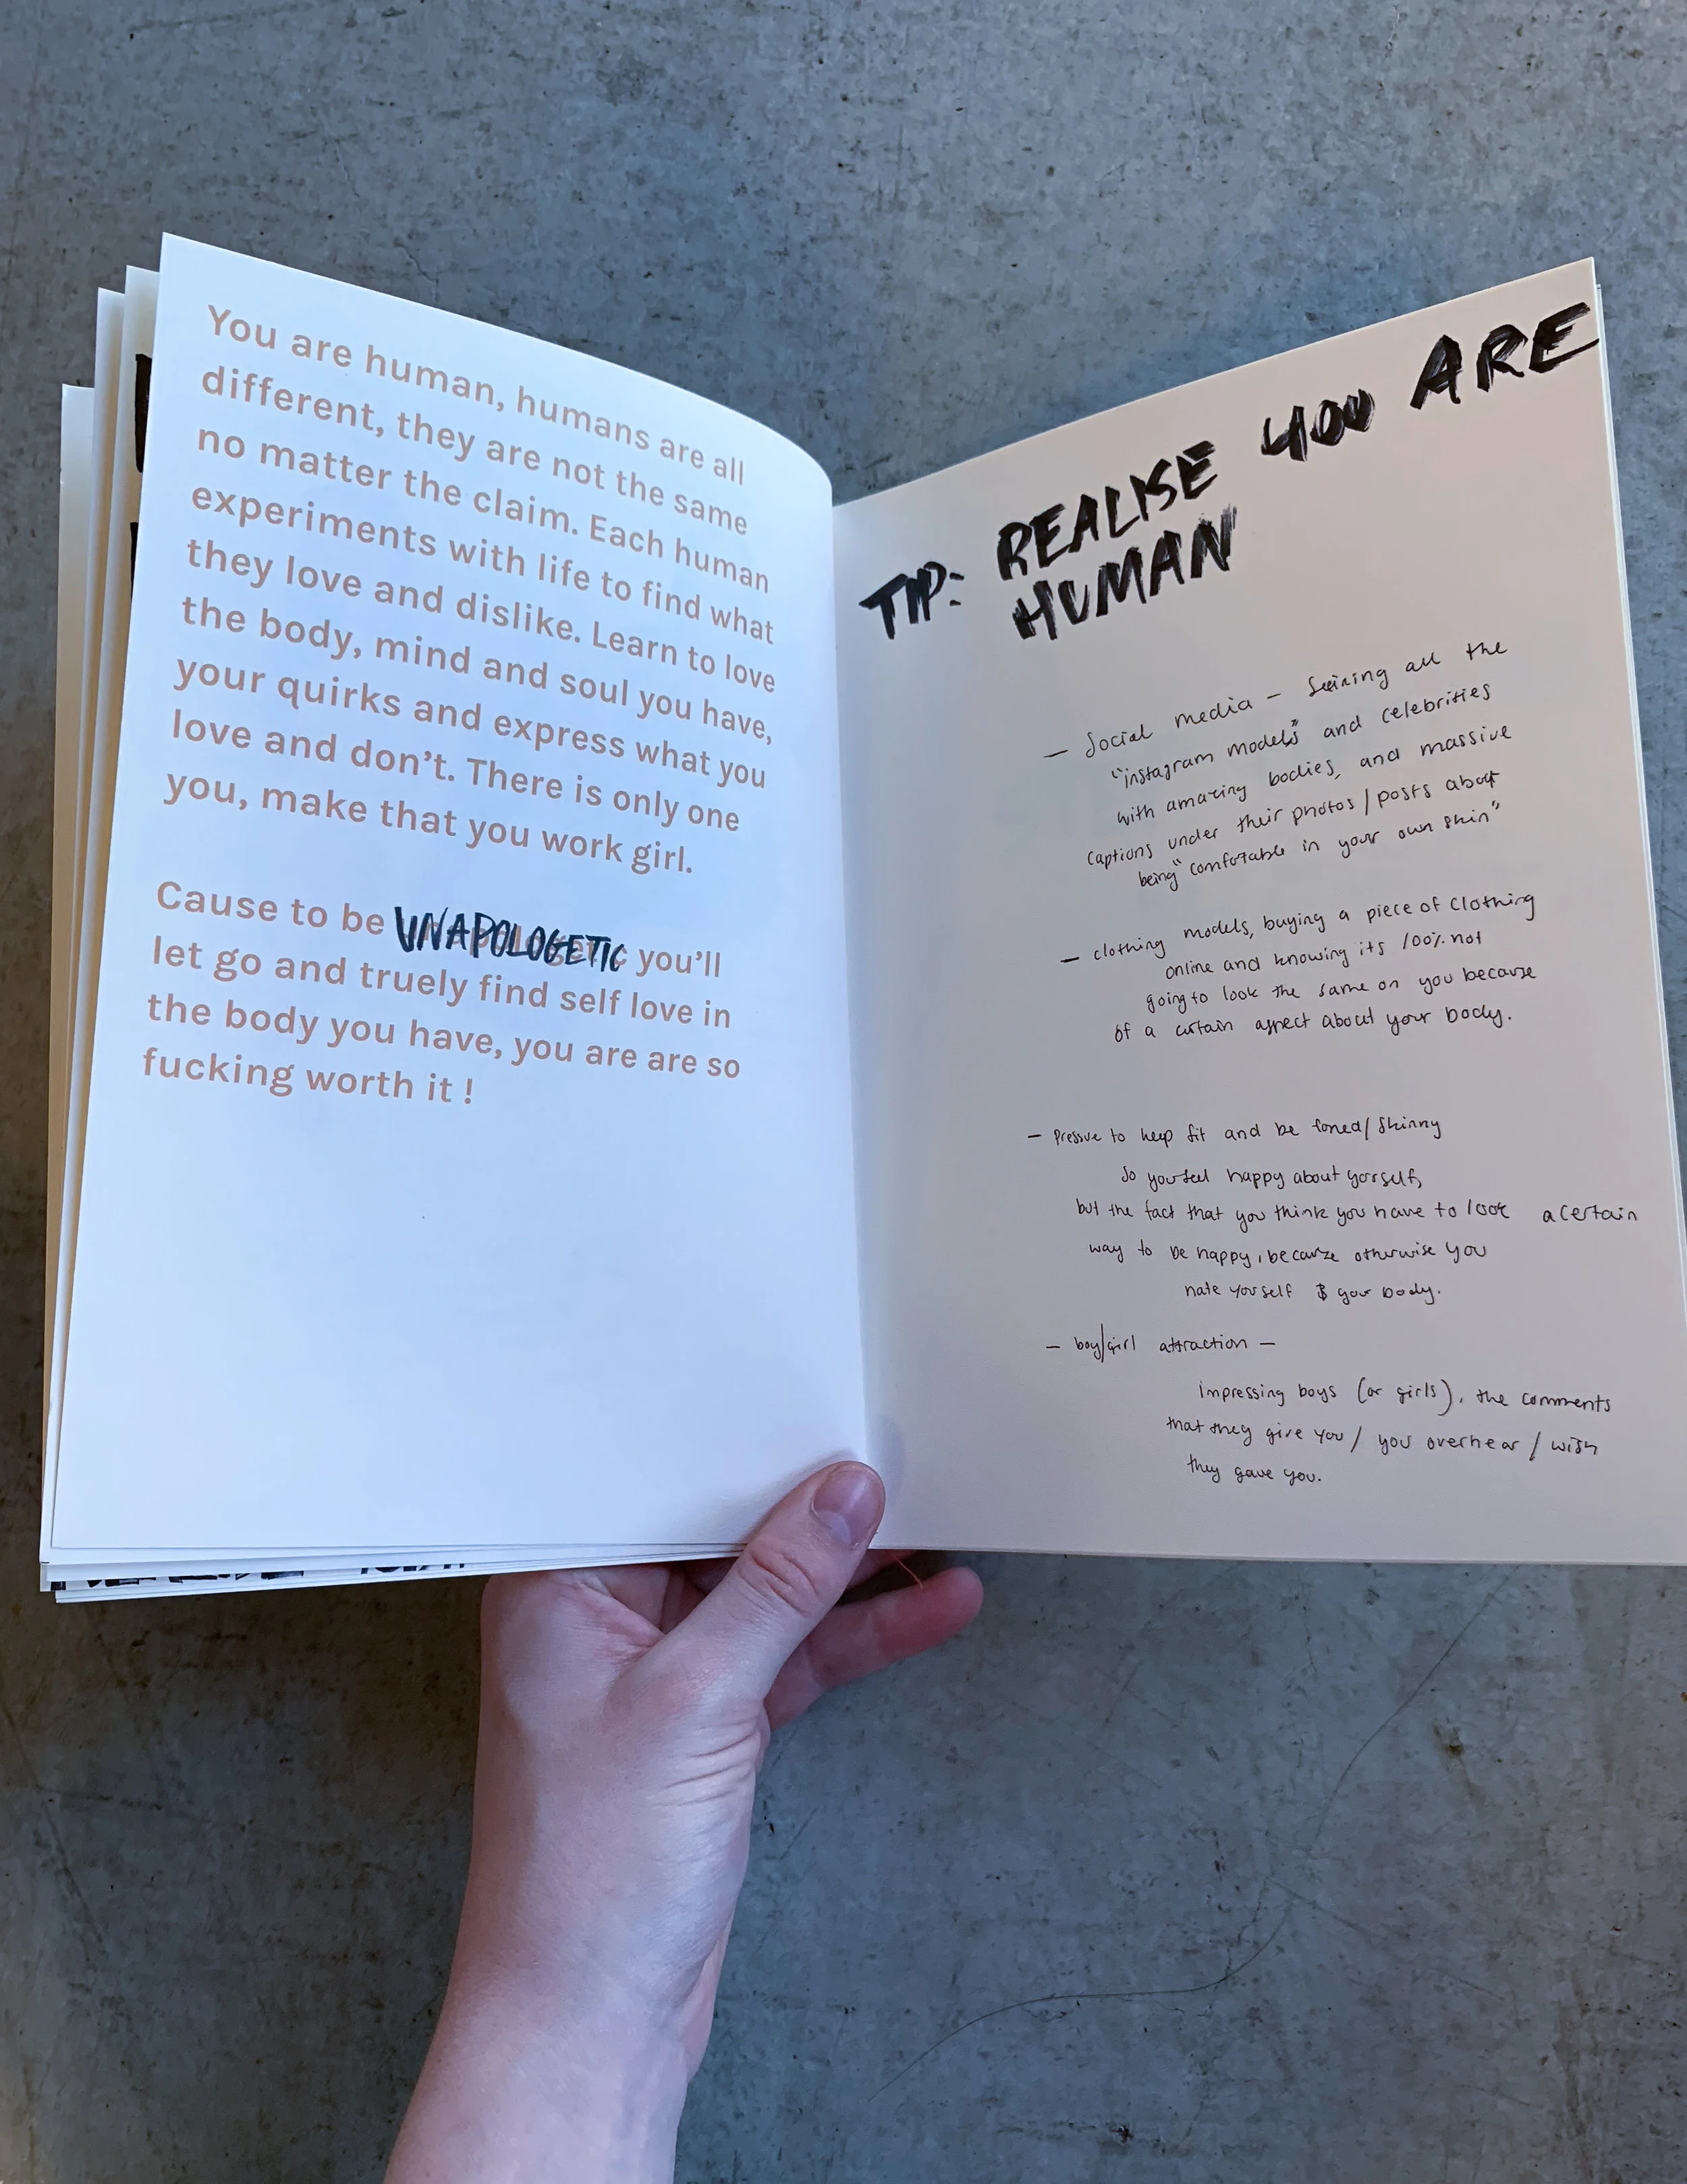 You are human, humans are all
different, they are not the same
no matter the claim. Each human
experiments with life to find what
they love and dislike. Learn to love
the body, mind and soul you have,
your quirks and express what you
love and don't. There is only one
you, make that you work girl.
Cause to be UNAPOLOGETIC you'll
let go and truely find self love in
the body you have, you are are so
fucking worth it !
TIP: REALISE YOU ARE
HUMAN
– Social media – seeing all the
"instagram models" and celebrities
with amazing bodies, and massive
captions under their photos / posts about
being "comfortable in your own skin"
– clothing models, buying a piece of clothing
online and knowing its 100% not
going to look the same on you because
of a certain aspect about your body.
– Pressure to keep fit and be toned / skinny
So you feel happy about yourself,
but the fact that you think you have to look a certain
way to be happy, because otherwise you
hate yourself & your body.
– boy/girl attraction –
impressing boys (or girls), the comments
that they give you / you overhear / wish
they gave you.